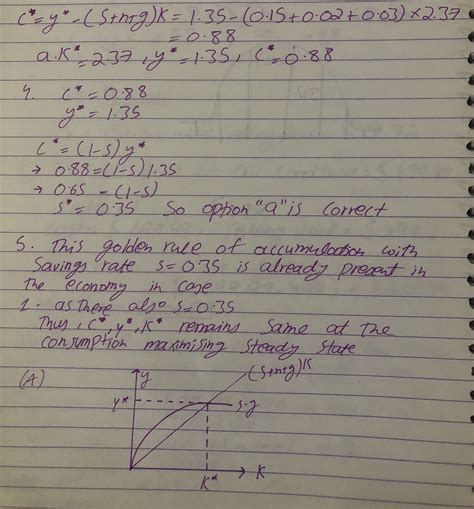 C* = y* - (S+n+g)K = 1.35 - (0.15+0.02+0.03) × 2.37
= 0.88
a. K* = 2.37, y* = 1.35, C* = 0.88
4. C* = 0.88
y* = 1.35
C* = (1-S) y*
→ 0.88 = (1-S) 1.35
→ 0.65 - (1-S)
S* = 0.35 So option "a" is correct
5. This golden rule of accumulation with
Savings rate S = 0.35 is already present in
The economy in case
1. as There also S = 0.35
Thus, C*, y*, K* remains Same at The
Consumption maximising Steady State
(A)
y
(S+n+g)K
y*
s.y
K
K*